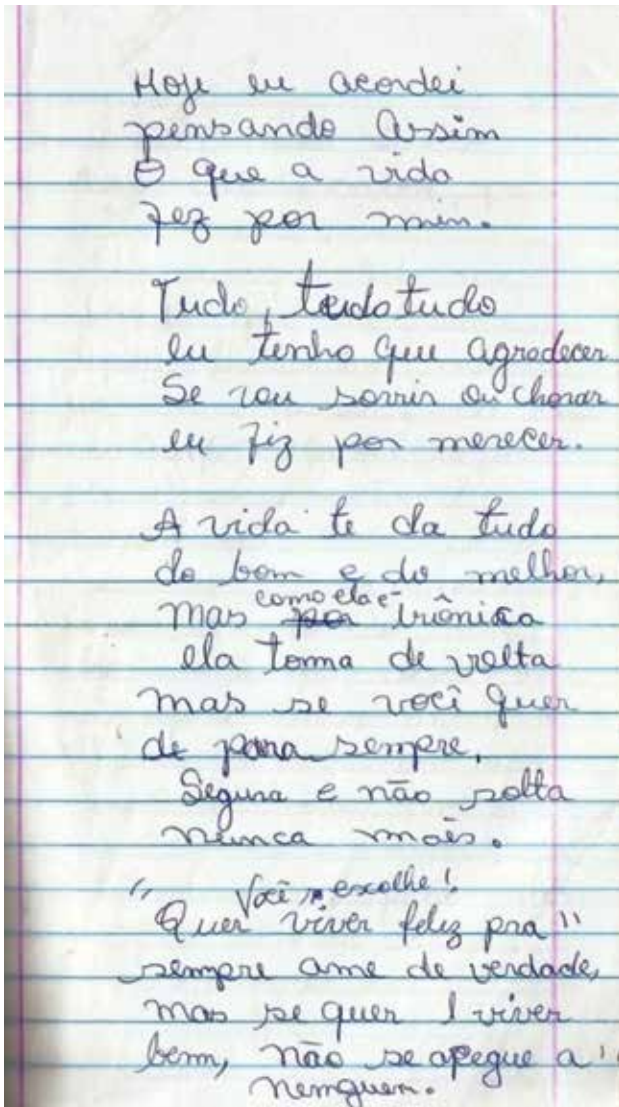 Hoje eu acordei
pensando assim
O que a vida
fez por mim.
Tudo, tudo tudo
eu tenho que agradecer
Se vou sorrir ou chorar
eu fiz por merecer.
A vida te da tudo
do bom e do melhor,
como ela é
mas por irônica
ela toma de volta
mas se você quer
de para sempre,
Segura e não solta
nunca mais.
Você escolhe!
"Quer viver feliz pra"
sempre ame de verdade,
mas se quer viver
bem, não se apegue a"
nenguem.